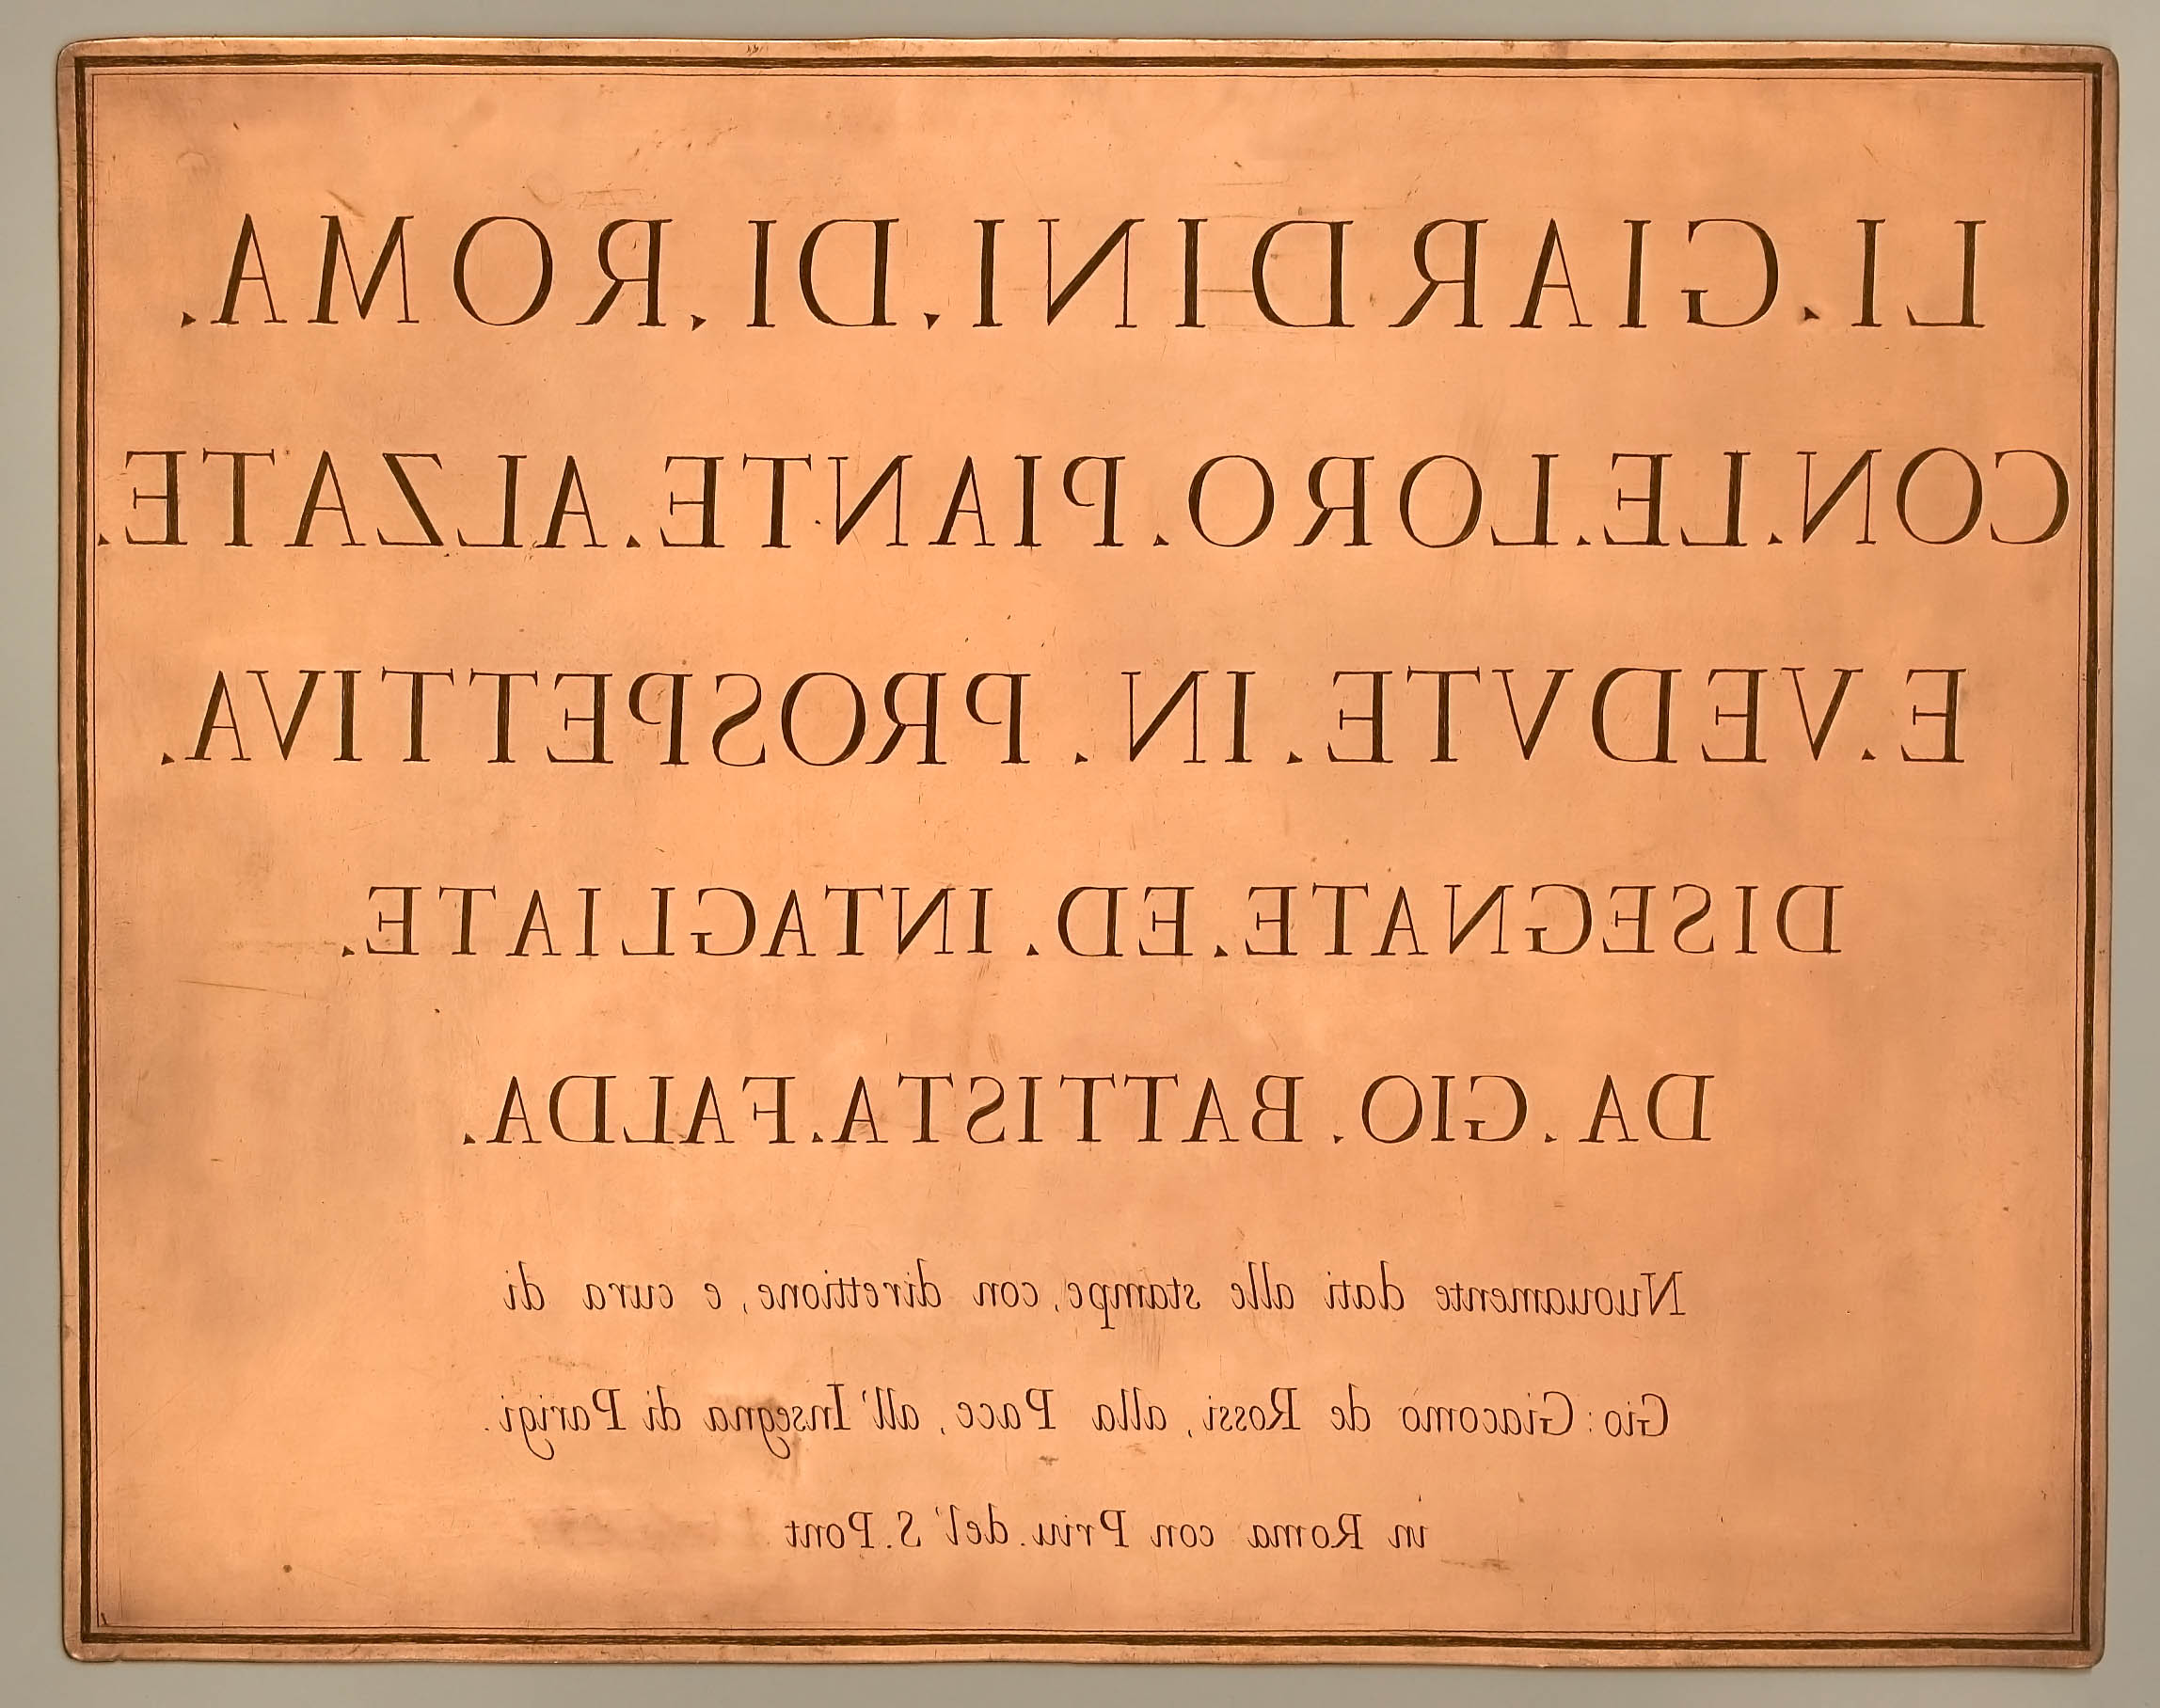 LI.GIARDINI.DI.ROMA.
CON.LE.LORO.PIANTE.ALZATE.
E.VEDVTE.IN.PROSPETTIVA.
DISEGNATE.ED.INTAGLIATE.
DA.GIO.BATTISTA.FALDA.
Nuouamente dati alle stampe, con direttione, e cura di
Gio: Giacomo de Rossi, alla Pace, all'Insegna di Parigi.
in Roma con Priu. del' S. Pont